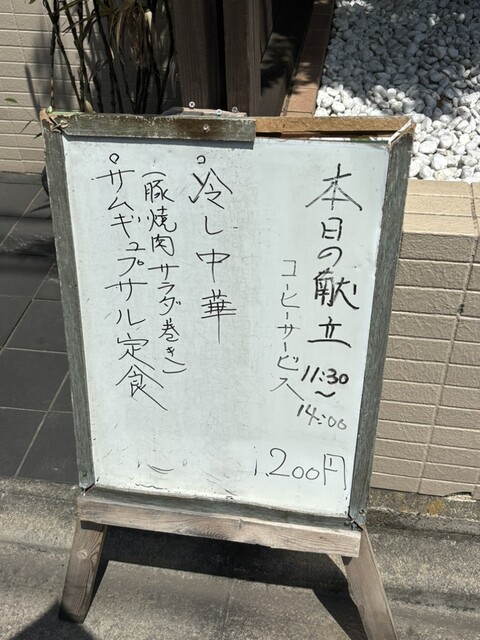 本日の献立
11:30
～
14:00
コーヒーサービス
1,200円
○冷し中華
(豚焼肉サラダ巻き)
○サムギョプサル定食